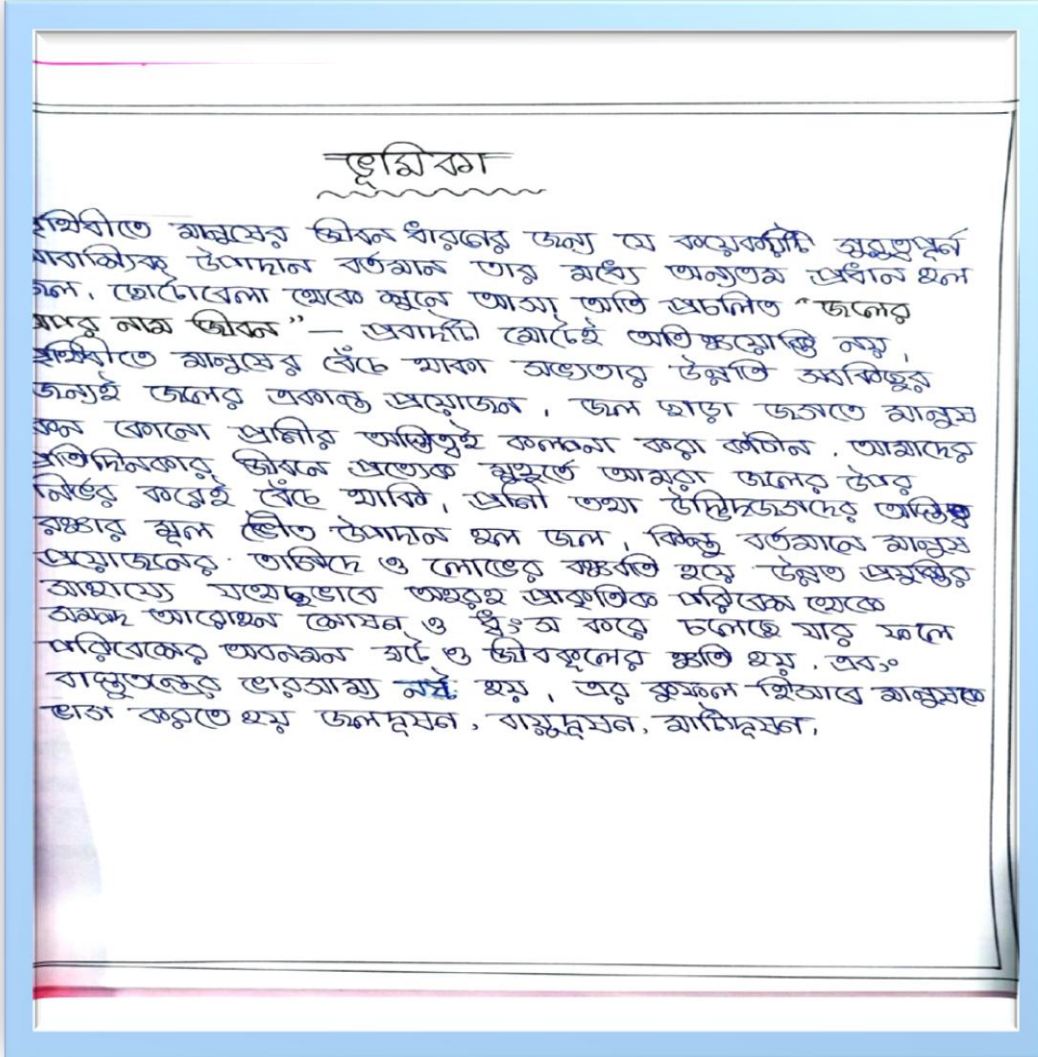 ভূমিকা
পৃথিবীতে মানুষের জীবন ধারনের জন্য যে কয়েকয়টি গুরুত্বপূর্ন
উপাদান বর্তমান তার মধ্যে অন্যতম প্রধান হল
জল, ছোটোবেলা থেকে শুনে আসা অতি প্রচলিত "জলের
অপর নাম জীবন" — প্রবাদটি মোটেই অতিশয়োক্তি নয়,
পৃথিবীতে মানুষের বেঁচে থাকা সভ্যতার উন্নতি সবকিছুর
জন্যই জলের একান্ত প্রয়োজন, জল ছাড়া জগতে মানুষ
কেন কোনো প্রানীর অস্তিত্বই কল্পনা করা কঠিন. আমাদের
প্রতিদিনকার জীবনে প্রত্যেক মুহুর্তে আমরা জলের উপর
নির্ভর করেই বেঁচে থাকি, প্রানী তথা উদ্ভিদজগদের অস্তিত্ব
রক্ষার মূল ভৌত উপাদান হল জল, কিন্তু বর্তমানে মানুষ
প্রয়োজনের তাগিদে ও লোভের বশবর্তি হয়ে উন্নত প্রযুক্তির
সাহায্যে যথেচ্ছভাবে অহরহ প্রাকৃতিক পরিবেশ থেকে
সম্পদ আরোহন শোষন ও ধ্বংস করে চলেছে যার ফলে
পরিবেশের অবনমন ঘটে ও জীবকূলের ক্ষতি হয়. এবং
বাস্তুতন্ত্রের ভারসাম্য নষ্ট হয়, এর কুফল হিসাবে মানুষকে
ভোগ করতে হয় জলদূষন, বায়ুদূষন, মাটিদূষন,